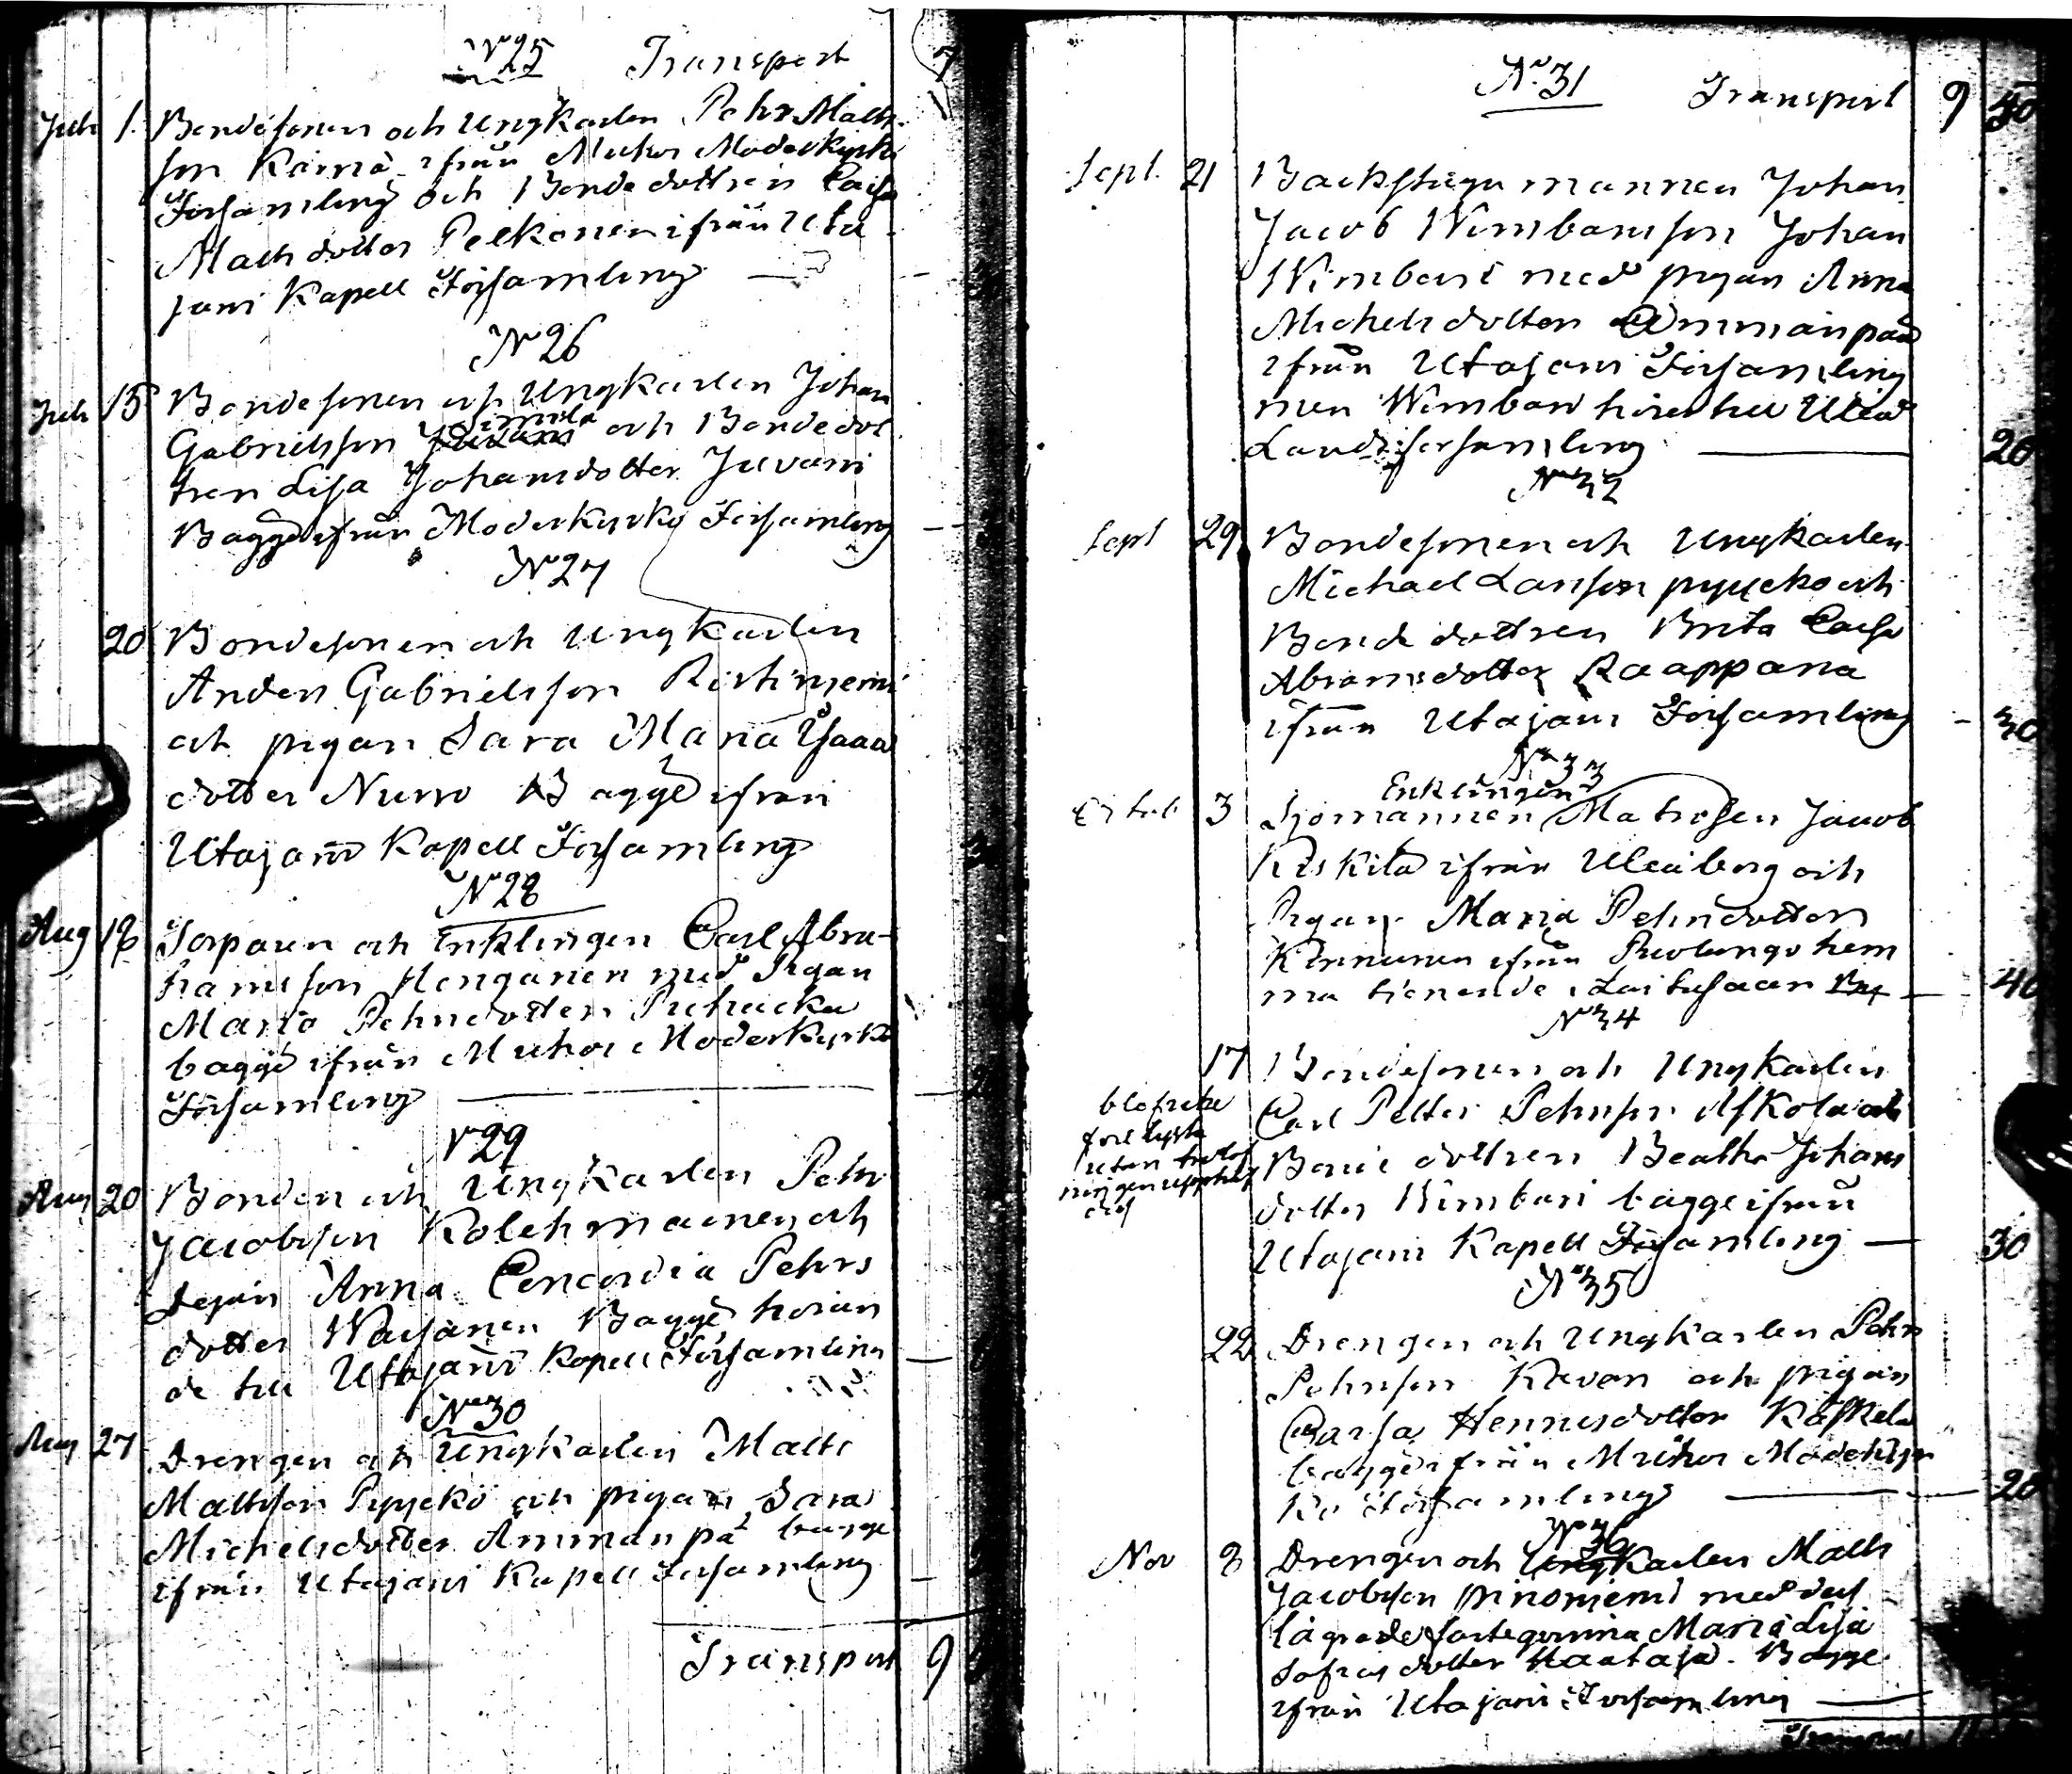 No 25 Transport 7
Juli 1. Bondesonen och Ungkarlen Pehr Matts
son Kärnä ifrån Muhos Moderkyrko
Församling och Bonde dottren Caisa
Matts dotter Pelkonen ifrån Uta
jervi Kapell Församling
No 26
Juli 15 Bondesonen och Ungkarlen Johan
Gabrielsson och Bondedot
tren Lisa Johansdotter Juvani
Bägge ifrån Moderkyrko Församling
No 27
20 Bondesonen och Ungkarlen
Anders Gabrielsson Ristiniemi
och pigan Sara Maria Isaacs
dotter Nurro Bägge ifrån
Utajärvi Kapell Församling
No 28
Aug 18 Torparen och Enklingen Carl Abra-
hamsson Henganen med Pigan
Maria Pehrsdotter
bägge ifrån Muhos Moderkyrko
Församling
No 29
Aug 20 Bonden och Ungkarlen Pehr
Jacobsson Kolehmainen och
Anna Concordia Pehrs
dotter Waisänen Bägge höran
de till Utajärvi Kapell Församling
No 30
Aug 27 Drengen och Ungkarlen Matts
Mattsson Pyyckö och pigan Sara
Michelsdotter Ämmänpä bägge
ifrån Utajärvi Kapell Församling
Transport 9
No 31 Transport 9 30
Sept. 21 Backstugu mannen Johan
Jacob Wimbarisson Johan
Wimbari med pigan Anna
Michels dotter Ämmänpää
ifrån Utajärvi Församling
men Wimbari hörer till Uleå
Landsförsamling 20
No 32
Sept 29 Bondesonen och Ungkarlen
Michael Larsson pyyckö och
Bonde dottren Brita Caisa
Abramsdotter Raappana
ifrån Utajärvi Församling 30
No 33
Enklingen
Octob 3 Sjömannen Matrosen Jacob
Kiskila ifrån Uleåborg och
Pigan Maria Pehrsdotter
Kinnunen ifrån hem
ma tjenande i Laitasaari 40
No 34
17 Bondesonen och Ungkarlen
Carl Petter Pehrsson Askola och
Bonde dottren Beatha Johans
dotter Wimbari bägge ifrån
Utajärvi Kapell Församling 30
blefvo icke
lysta
utan
No 35
22 Drengen och Ungkarlen Pehr
Pehrsson Keven och pigan
Caisa Hennesdotter Käskela
bägge ifrån Muhos Moderkyr
ko Församling 20
No 36
Nov 8 Drengen och Ungkarlen Matts
Jacobsson Niinoniemi med dess
lägrade fästeqvinna Maria Lisa
dotter Haataja. Bägge
ifrån Utajärvi Församling
Transport 11